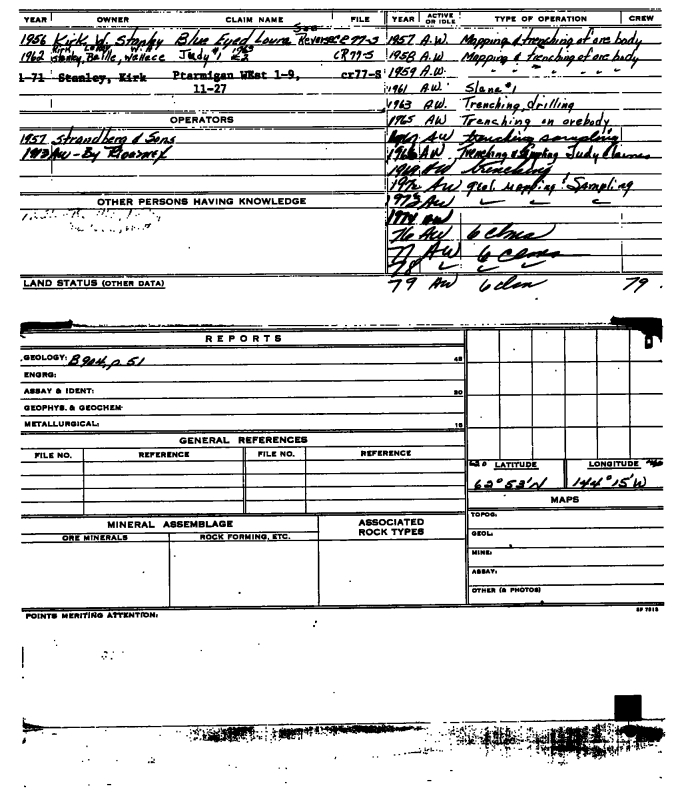 YEAR OWNER CLAIM NAME FILE YEAR ACTIVE OR IDLE TYPE OF OPERATION CREW
1956 Kirk W. Stanley Blue Eyed Loura See Reverse CR77-S 1957 A.W. Mapping & trenching of ore body
1962 Kirk, Stanley, Bellie, Wallace Judy #1 1963 #2 CR77-S 1958 A.W Mapping & trenching of ore body
1-71 Stanley, Kirk Ptarmigan WEst 1-9, cr77-S 1959 A.W. " " " "
11-27 1961 A.W. Slane #1
1963 A.W. Trenching, drilling
OPERATORS 1965 AW Trenching on orebody
1957 Strandberg & Sons AW trenching sampling
AW - By 1966 AW Trenching & Sampling Judy Claims
1969 AW trenching
1972 AW geol. mapping & Sampling
OTHER PERSONS HAVING KNOWLEDGE 1973 AW
1974 AW
76 AW 6 clms
77 AW 6 clms
78
LAND STATUS (OTHER DATA) 79 AW 6 clm 79
REPORTS
GEOLOGY: B 904, p. 51
ENGRG:
ASSAY & IDENT:
GEOPHYS. & GEOCHEM-
METALLURGICAL:
GENERAL REFERENCES
FILE NO. REFERENCE FILE NO. REFERENCE LATITUDE LONGITUDE
62° 53' N 144° 15' W
MAPS
MINERAL ASSEMBLAGE ASSOCIATED ROCK TYPES TOPOG.
ORE MINERALS ROCK FORMING, ETC. GEOL:
MINE:
ASSAY:
OTHER (& PHOTOS)
POINTS MERITING ATTENTION: